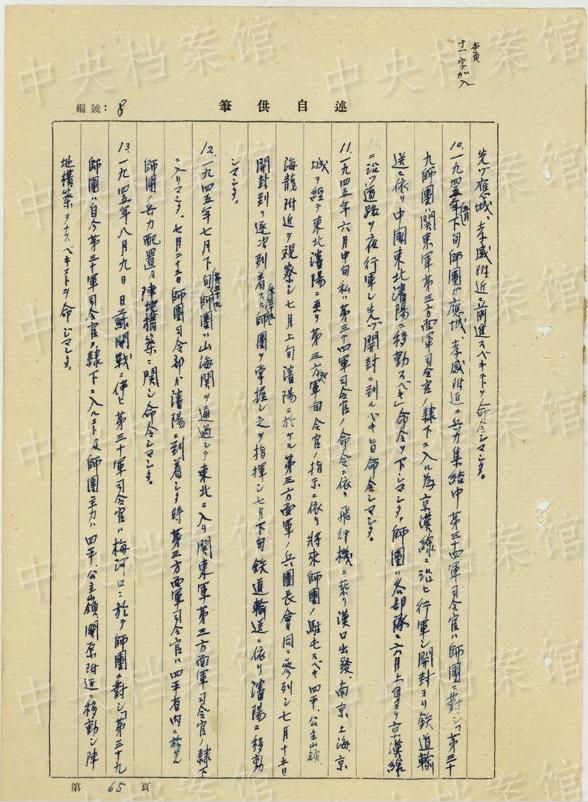 本頁
十一字加入
編號：8
筆供自述
先ヅ應城、孝感附近ニ前進スベキトヲ命令シマシタ。
10.一九四五年五月下旬師団ガ應城、孝感附近ニ兵力集結中第三十四軍司令官ハ師団ニ對シ「第三十
九師団ハ関東軍第三方面軍司令官ノ隷下ニ入ル為京漢線ニ沿ヒ行軍シ開封ヨリ鉄道輸
送ニ依リ中國東北瀋陽ニ移動スベキ」命令ヲ下シマシタ。師団ハ各部隊ニ六月上旬ヨリ京漢線
ニ沿フ道路ヲ夜行軍シ先ヅ開封ニ到ルベキ旨命令シマシタ。
11.一九四五年六月中旬私ハ第三十四軍司令官ノ命令ニ依リ飛行機ニ乘リ漢口出發、南京、上海、京
城ヲ経テ東北瀋陽ニ至リ第三方面軍司令官ノ指示ニ依リ将來師団ノ駐屯スベキ四平、公主嶺、
海龍附近ヲ視察シ七月上旬瀋陽ニ於ケル第三方面軍ノ兵団長會同ニ參列シ七月十五日
開封ニ到リ逐次到着スル師団ヲ掌握シ之ヲ指揮シ七月下旬鉄道輸送ニ依リ瀋陽ニ移動
シマシタ。
12.一九四五年七月下旬第三十九師団ハ山海関ヲ通過シテ東北ニ入リ関東軍第三方面軍司令官ノ隷下
ニ入リマシタ。七月二十五日師団司令部ガ瀋陽ニ到着シタ時第三方面軍司令官ハ四平省内ニ於ケル
師団ノ兵力配置及陣地構築ニ関シ命令シマシタ。
13.一九四五年八月九日日蘇開戰ニ伴ヒ第三十軍司令官ハ梅河口ニ於テ師団ニ對シ「第三十九
師団ハ自今第三十軍司令官ノ隷下ニ入ルコト及師団主力ハ四平、公主嶺、開原附近ニ移動シ陣
地構築ヲナスベキコトヲ命ジマシタ。
第65頁
中央档案馆